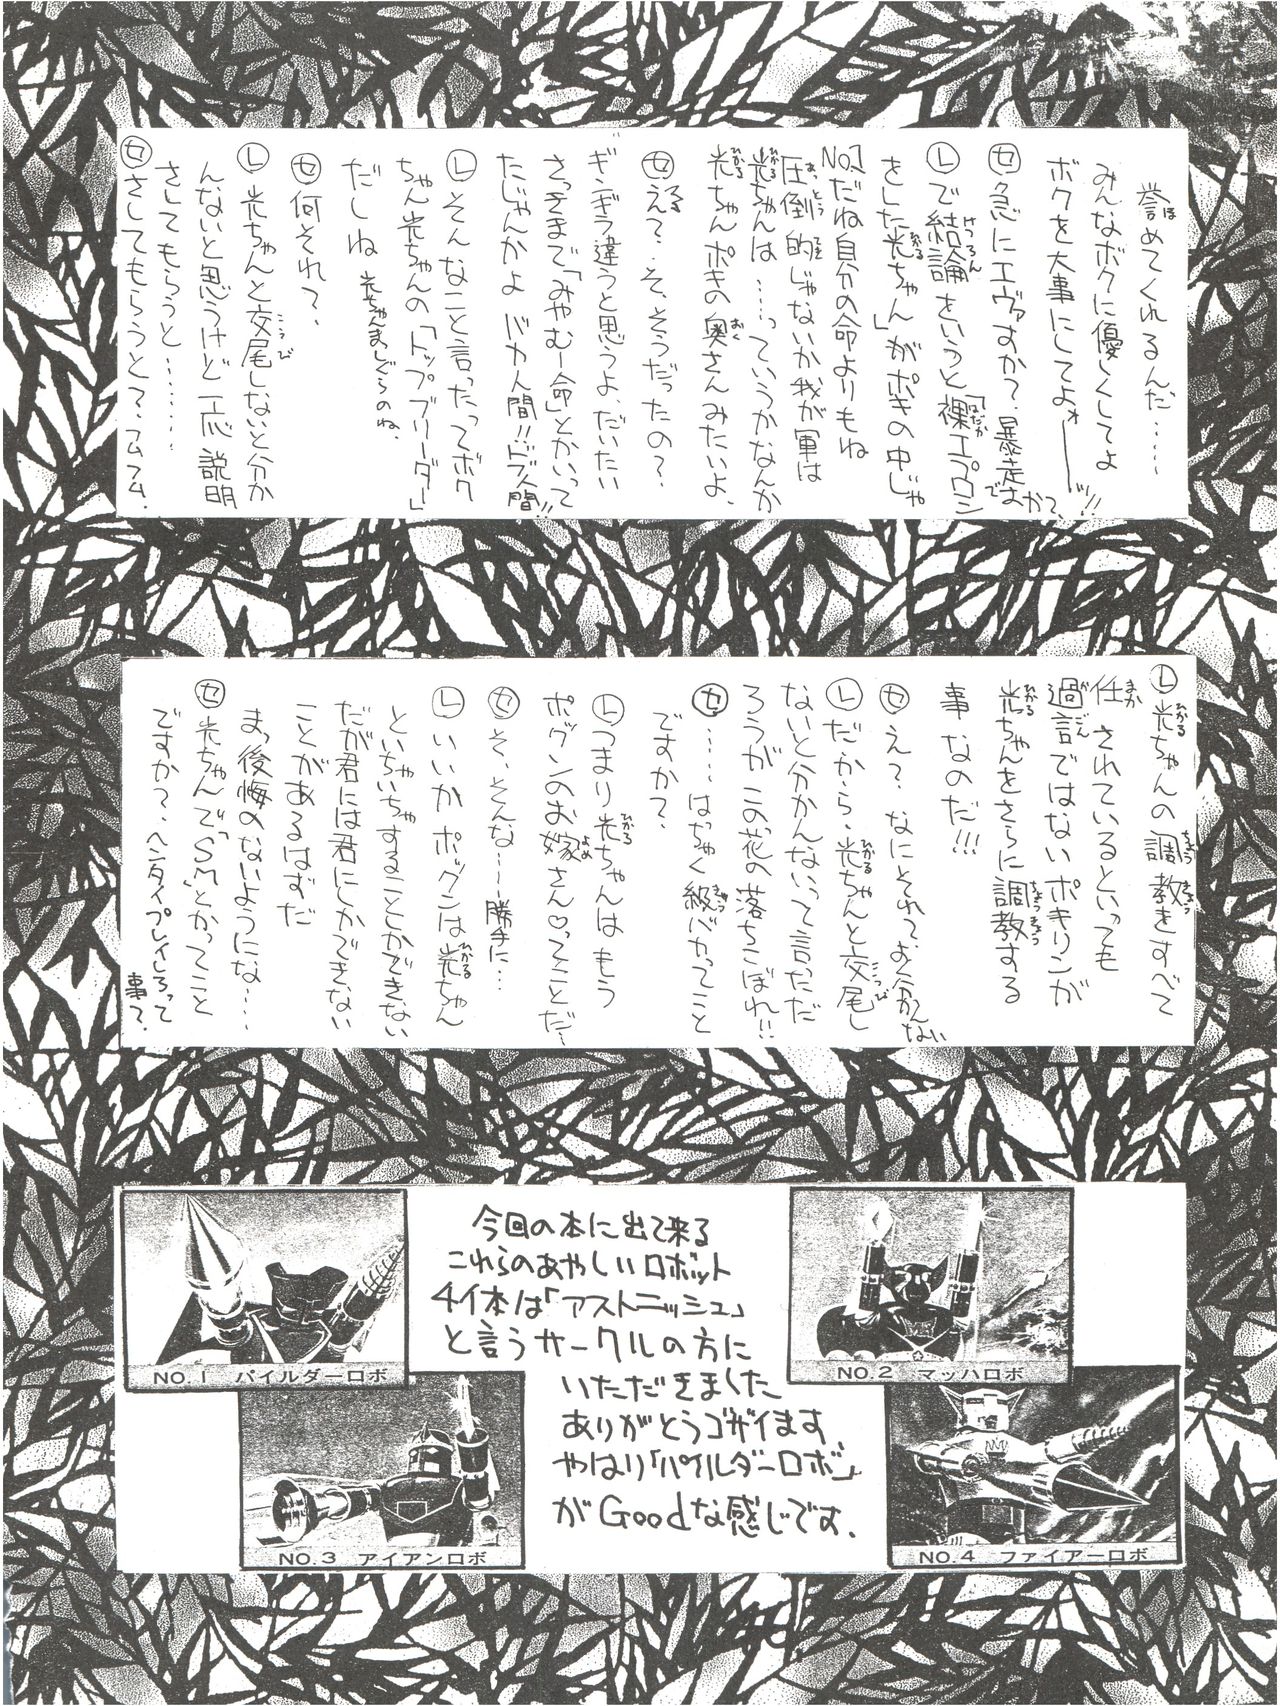 誉めてくれるんだ……
みんなボクに優しくしてよ
ボクを大事にしてよォ――ッ!!
セ 急にエヴァすか?.暴走すか?、
レ で結論をいうと「裸エプロン
をした光ちゃん」がポキの中じゃ
No.1だね自分の命よりもね
圧倒的じゃないか我が軍は
光ちゃんは……っていうかなんか
光ちゃんポキの奥さんみたいよ、
セ え?、そ、そうだったの?
ぎ、ギラ違うと思うよ、だいたい
さっきまで「みやむー命」とかいって
たじゃんかよ バカ人間!!ドブ人間!!
レ そんなこと言ったってボク
ちゃん光ちゃんの「トップブリーダー」
だしね 光ちゃんまじぐらのね、
セ 何それ?、
レ 光ちゃんと交尾しないと分か
んないと思うけど一応説明
さしてもらうと………
セ さしてもらうと?、フムフム、
レ 光ちゃんの調教をすべて
任されているといっても
過言ではないポキリンが
光ちゃんをさらに調教する
事なのだ!!!
セ え?、なにとれってお分かんない
レ だから、光ちゃんと交尾し
ないと分かんないって言っただ
ろうが この花の落ちこぼれ!!
セ ……はちゃく級バカってこと
ですか?、
レ つまり光ちゃんはもう
ポックンのお嫁さん♡ってことだ〜
セ そ、そんな〜勝手に…
レ いいかポックンは光ちゃん
といちゃいちゃすることしかできない
だが君には君にしかできない
ことがあるはずだ
まっ後悔のないようにな……
セ 光ちゃんで"SM"とかってこと
ですか?、ヘンタイプレイしろって
事?、
今回の本に出て来る
これらのあやしいロボット
4イ本は「アストニッシュ」
と言うサークルの方に
いただきました
ありがとうゴザイます
やはり「パイルダーロボ」
がGoodな感じです、
NO.1 パイルダーロボ
NO.2 マッハロボ
NO.3 アイアンロボ
NO.4 ファイアーロボ